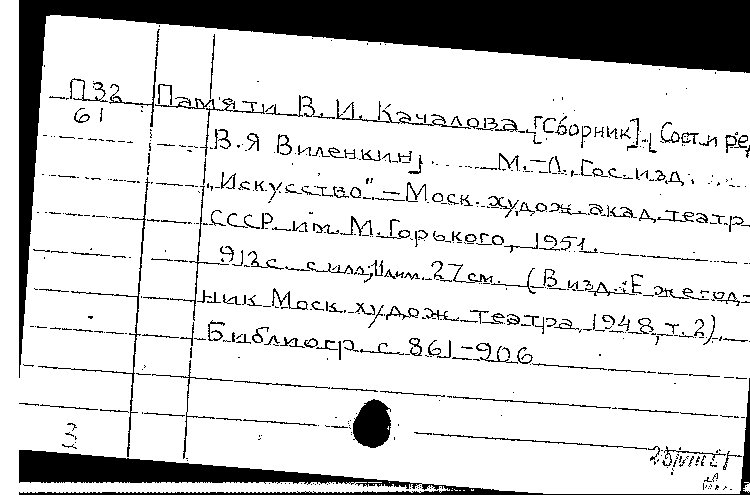 П32 Памяти В. И. Качалова [Сборник]. [Сост. и ред.
61
В. Я Виленкин]. М.-Л., Гос. изд.
„Искусство" – Моск. худож. акад. театр
СССР им. М. Горького, 1951.
912 с. с илл; 27 см. (В изд.: Ежегод-
ник Моск. худож. театра, 1948, т. 2).
Библиогр. с. 861-906
3